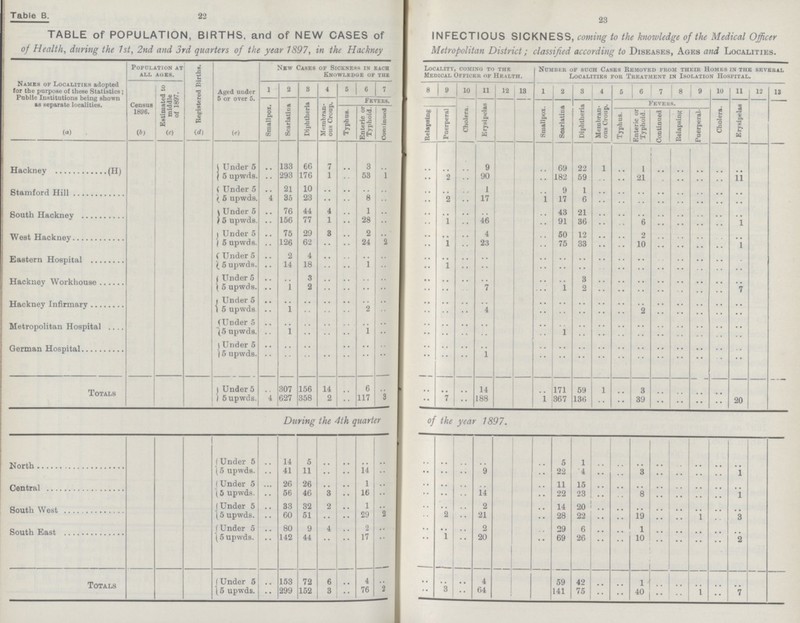 Table B.
22
TABLE of POPULATION, BIRTHS, and of NEW CASES of
of Health, during the 1st, 2nd and 3rd quarters of the year 1897, in the Hackney
23
INFECTIOUS SICKNESS, coming to the knowledge of the Medical Officer
Metropolitan District; classified according to Diseases, Ages and Localities.
Names of Localities adopted for the purpose of these Statistics; Public Institutions being shown as separate localities. (a)
Population at all ages. Census 1896. (b) Estimated to middle of 1897. (c)
Registered Births. (d)
Aged under 5 or over 5. (e)
New Cases of Sickness in each Knowledge of the
Locality, coming to the Medical Officer of Health.
Number of such Cases Removed from their Homes in the several Localities for Treatment in Isolation Hospital.
1 2 3 4 5 6 7 8 9 10 11 12 13 1 2 3 4 5 6 7 8 9 10 11 12 13
Fevers. Fevers.
Smallpox. Scarlatina Diphtheria Membranous Croup. Typhus. Enteric or Typhoid. Continued Relapsing Puerperal Cholera. Erysipelas Smallpox. Scarlatina Diphtheria Membranous Croup. Typhus. Enteric or Typhoid. Continued Relapsing Puerperal Cholera. Erysipelas
Hackney (H) Under 5 .. 133 66 7 .. 3 .. .. .. .. 9 .. 69 22 1 .. 1 .. .. .. .. ..
5 upwds. .. 293 176 1 .. 53 1 .. 2 .. 90 .. 182 59 .. .. 21 .. .. .. .. 11
Stamford Hill Under 5 .. 21 10 .. .. .. .. .. .. .. 1 .. 9 1 .. .. .. .. .. .. .. ..
5 upwds. 4 35 23 .. .. 8 .. .. 2 .. 17 1 17 6 .. .. .. .. .. .. .. ..
South Hackney Under 5 .. 76 44 4 .. 1 .. .. .. .. .. .. 43 21 .. .. .. .. .. .. .. ..
5 upwds. .. 156 77 1 .. 28 .. .. 1 .. 46 .. 91 36 .. .. 6 .. .. .. .. 1
West Hackney Under 5 .. 75 29 3 .. 2 .. .. .. .. 4 .. 50 12 .. .. 2 .. .. .. .. ..
5 upwds. .. 126 62 .. .. 24 2 .. 1 .. 23 .. 75 33 .. .. 10 .. .. .. .. 1
Eastern Hospital Under 5 .. 2 4 .. .. .. .. .. .. .. .. .. .. .. .. .. .. .. .. .. .. ..
5 upwds. .. 14 18 .. .. 1 .. .. 1 .. .. .. .. .. .. .. .. .. .. .. .. ..
Hackney Workhouse Under 5 .. .. 3 .. .. .. .. .. .. .. .. .. .. 3 .. .. .. .. .. .. .. ..
5 upwds. .. 1 2 .. .. .. .. .. .. .. 7 .. 1 2 .. .. .. .. .. .. .. 7
Hackney Infirmary Under 5 .. .. .. .. .. .. .. .. .. .. .. .. .. .. .. .. .. .. .. .. .. ..
5 upwds .. 1 .. .. .. 2 .. .. .. .. 4 .. .. .. .. .. 2 .. .. .. .. ..
Metropolitan Hospital Under 5 .. .. .. .. .. .. .. .. .. .. .. .. .. .. .. .. .. .. .. .. .. ..
5 upwds. .. 1 .. .. .. 1 .. .. .. .. .. .. 1 .. .. .. .. .. .. .. .. ..
German Hospital Under 5 .. .. .. .. .. .. .. .. .. .. .. .. .. .. .. .. .. .. .. .. .. ..
5 upwds. .. .. .. .. .. .. .. .. .. .. 1 .. .. .. .. .. .. .. .. .. .. ..
Totals Under 5 .. 307 156 14 .. 6 .. .. .. .. 14 .. 171 59 1 .. 3 .. .. .. ..
5 upwds. 4 627 358 2 .. 117 3 .. 7 .. 188 1 367 136 .. .. 39 .. .. .. .. 20
During the 4th quarter of the year 1897.
North Under 5 .. 14 5 .. .. .. .. .. .. .. .. .. 5 1 .. .. .. .. .. .. .. ..
5 upwds. .. 41 11 .. .. 14 .. .. .. .. 9 .. 22 4 .. .. 3 .. .. .. .. 1
Central Under 5 ... 26 26 .. .. 1 .. .. .. .. .. .. 11 15 .. .. .. .. .. .. .. ..
5 upwds. .. 56 46 3 .. 16 .. .. .. .. 14 .. 22 23 .. .. 8 .. .. .. .. 1
South West Under 5 .. 33 32 2 .. 1 .. .. .. .. 2 .. 14 20 .. .. .. .. .. .. .. ..
5 upwds. .. 60 51 .. .. 29 2 .. 2 .. 21 .. 28 22 .. .. 19 .. .. 1 .. 3
South East Under 5 .. 80 9 4 .. 2 .. .. .. .. 2 .. 29 6 .. .. 1 .. .. .. .. ..
5 upwds. .. 142 44 .. .. 17 .. .. 1 .. 20 .. 69 26 .. .. 10 .. .. .. .. 2
Totals Under 5 .. 153 72 6 .. 4 .. .. .. .. 4 59 42 .. .. 1 .. .. .. .. ..
5 upwds. .. 299 152 3 .. 76 2 .. 3 .. 64 141 75 .. .. 40 .. .. 1 .. 7